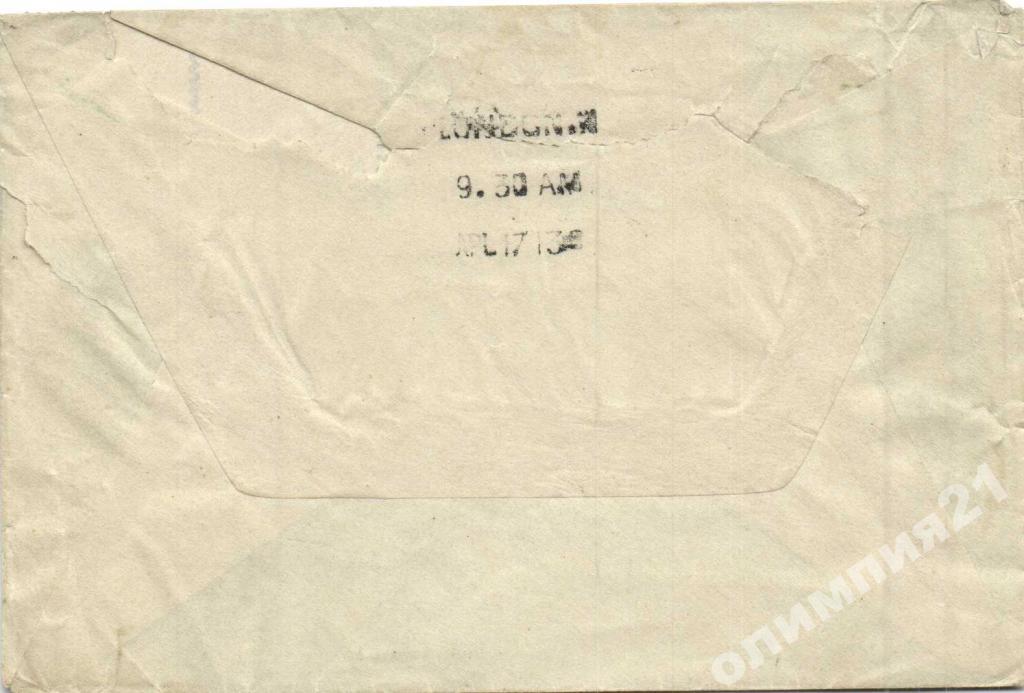 LONDON.W
9.30 AM
APL 17 13
олимпия21